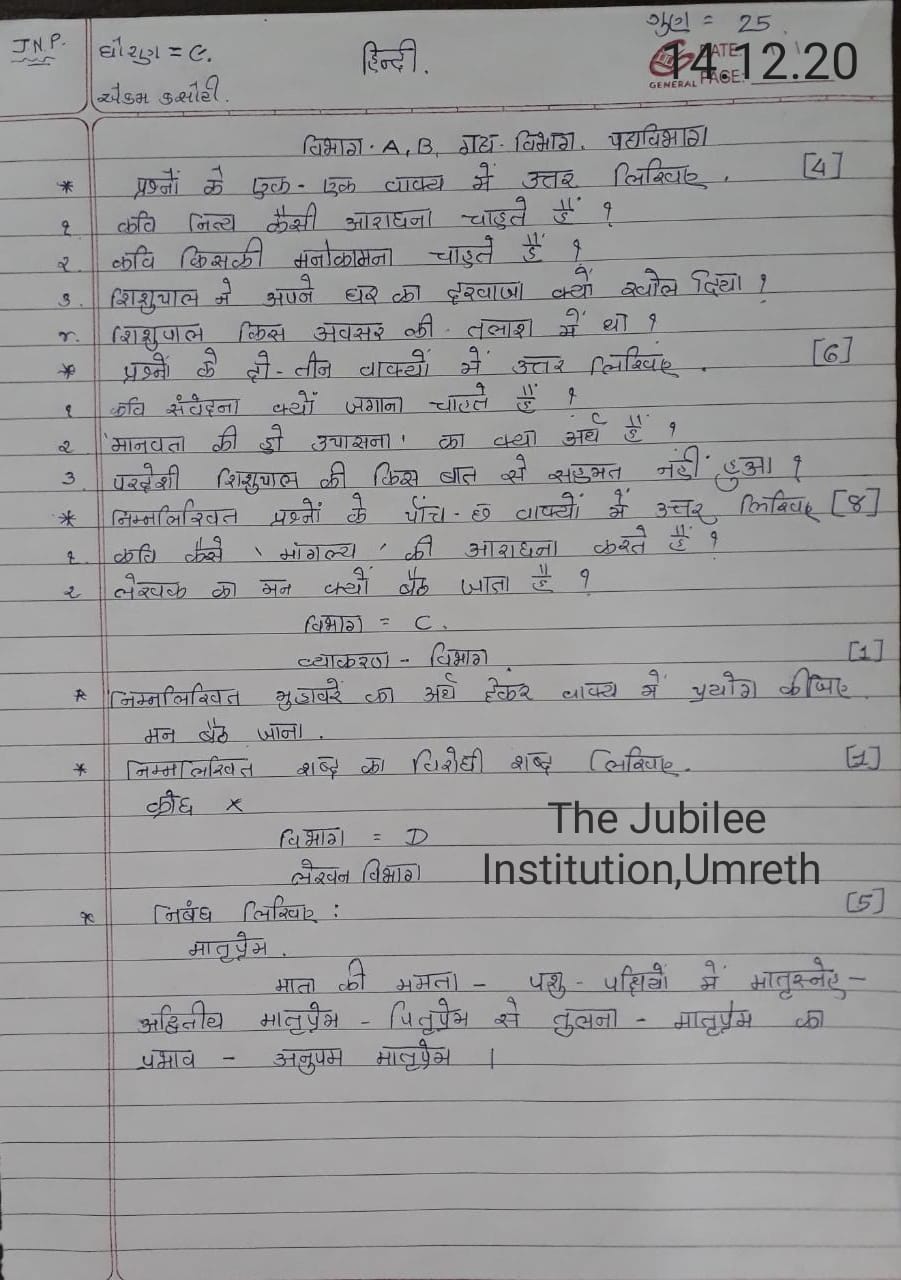 J.N.P.
ગુણ = 25
ધોરણ = ૯.
हिन्दी.
DATE
14.12.20
GENERAL PAGE:
એકમ કસોટી.
विभाग. A, B, गद्य-विभाग. पद्यविभाग
* प्रश्नों के एक-एक वाक्य में उत्तर लिखिए. [4]
१ कवि नित्य कैसी आराधना चाहते हैं ?
२. कवि किसकी मनोकामना चाहते हैं ?
३. शिशुपाल ने अपने घर का दरवाजा क्यों खोल दिया ?
४. शिशुपाल किस अवसर की तलाश में था ?
* प्रश्नों के दो-तीन वाक्यों में उत्तर लिखिए. [6]
१ कवि संवेदना क्यों जगाना चाहते हैं ?
२ 'मानवता की हो उपासना' का क्या अर्थ है ?
३ परदेशी शिशुपाल की किस बात से सहमत नहीं हुआ ?
* निम्नलिखित प्रश्नों के पाँच-छ वाक्यों में उत्तर लिखिए [8]
१. कवि कैसे 'मांगल्य' की आराधना करते हैं ?
२ लेखक का मन क्यों बैठ जाता है ?
विभाग = C.
व्याकरण - विभाग [1]
* निम्नलिखित मुहावरें का अर्थ देकर वाक्य में प्रयोग कीजिए.
मन बैठ जाना.
* निम्नलिखित शब्द का विरोधी शब्द लिखिए. [1]
क्रोध ×
विभाग = D
The Jubilee
लेखन विभाग
Institution,Umreth
* निबंध लिखिए : [5]
मातृप्रेम.
माता की ममता - पशु-पक्षियों में मातृस्नेह -
अद्वितीय मातृप्रेम - पितृप्रेम से तुलना - मातृप्रेम का
प्रभाव - अनुपम मातृप्रेम |